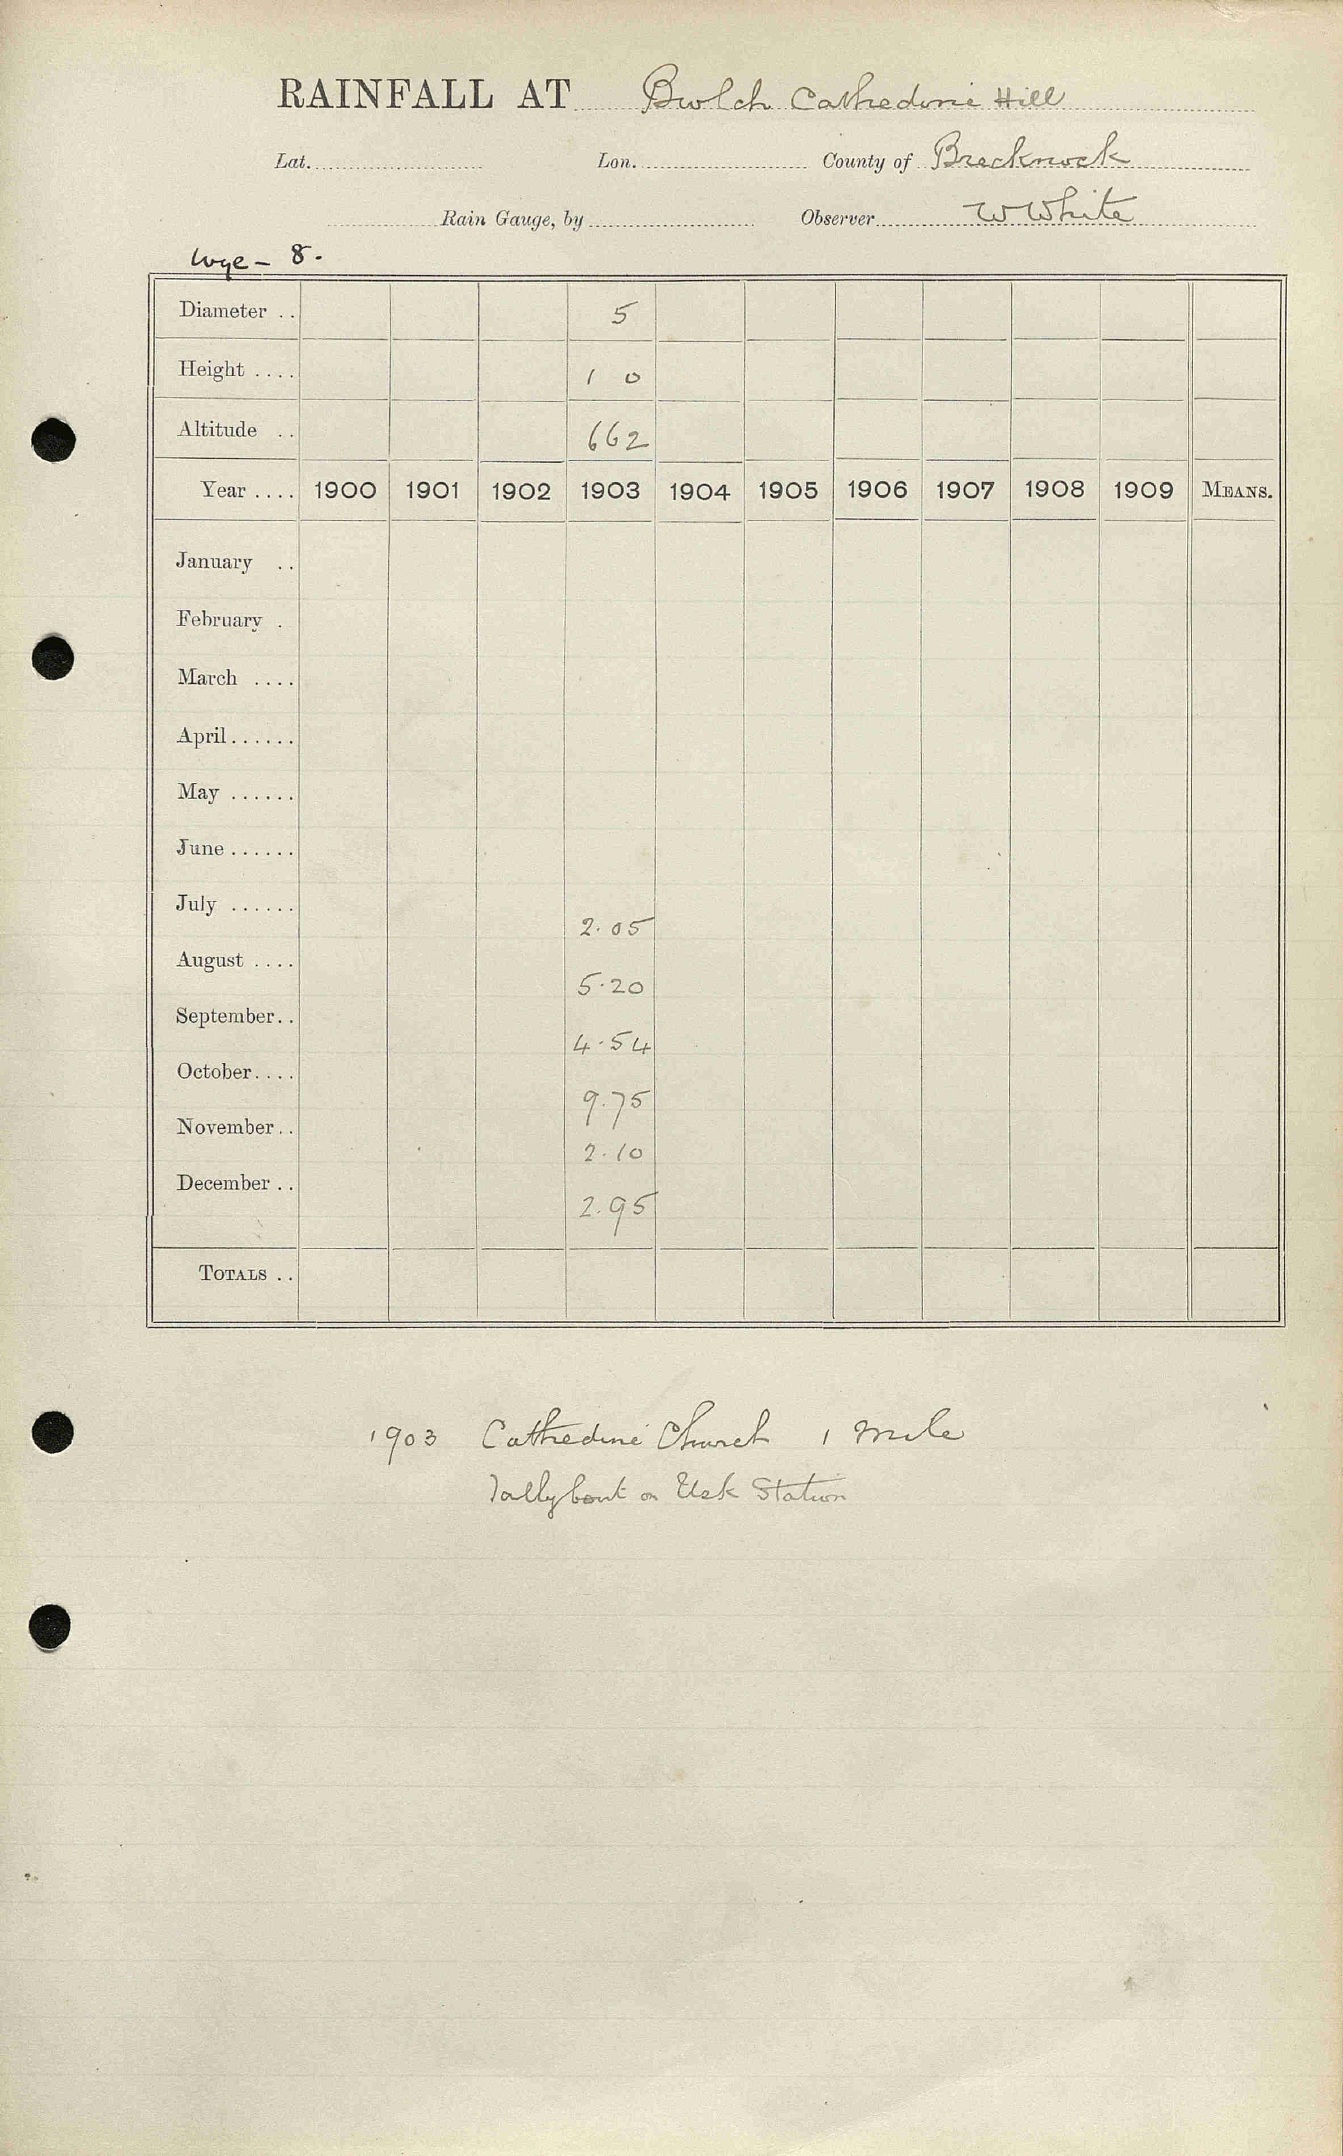 RAINFALL AT Bwlch Cathedine Hill
Lat. Lon. County of Brecknock
Rain Gauge, by Observer W White
Wye - 8.
Diameter . . 5
Height . . . . 1 0
Altitude . . 662
Year . . . . 1900 1901 1902 1903 1904 1905 1906 1907 1908 1909 MEANS.
January . .
February .
March . . . .
April . . . . . .
May . . . . . .
June . . . . . .
July . . . . . . 2.05
August . . . . 5.20
September . . 4.54
October . . . . 9.75
November . . 2.10
December . . 2.95
TOTALS . .
1903 Cathedine Church 1 Mile
Tallybont on Usk Station